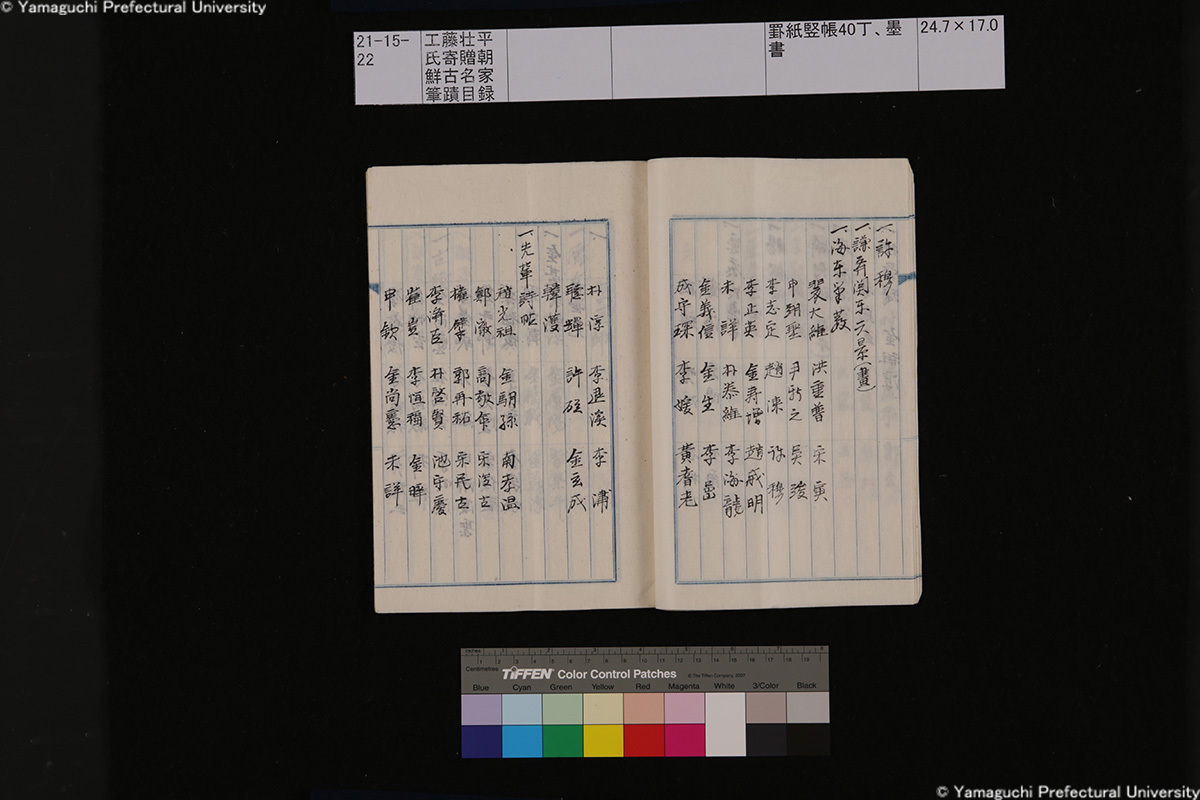 © Yamaguchi Prefectural University
21-15-22
工藤壮平
氏寄贈朝
鮮古名家
筆蹟目録
罫紙竪帳40丁、墨書
24.7×17.0
一、許穆
一、謙斎関東六景(畫)
一、海东
裴大維 洪重普 宋寅
申翊聖 尹新之 吳竣
李志定 趙涑 許穆
李正英 金寿增 趙威明
未詳 朴泰維 李海龍
金義信 金生 李嵒
成守琛 李媛 黃耆老
朴淳 李退溪 李潚
許硡 金玄成
韓濩
一、先輩詩帖
趙光祖 金馹孫 南孝温
鄭澈 高敬命 宋浚吉
權擘 郭再祐 宋民古
李海臣 朴啓賢 池守慶
崔岦 李恒福 金暉
申欽 金尚憲 未詳
Inches
Centimetres
TIFFEN Color Control Patches
© The Tiffen Company, 2007
Blue Cyan Green Yellow Red Magenta White 3/Color Black
© Yamaguchi Prefectural University